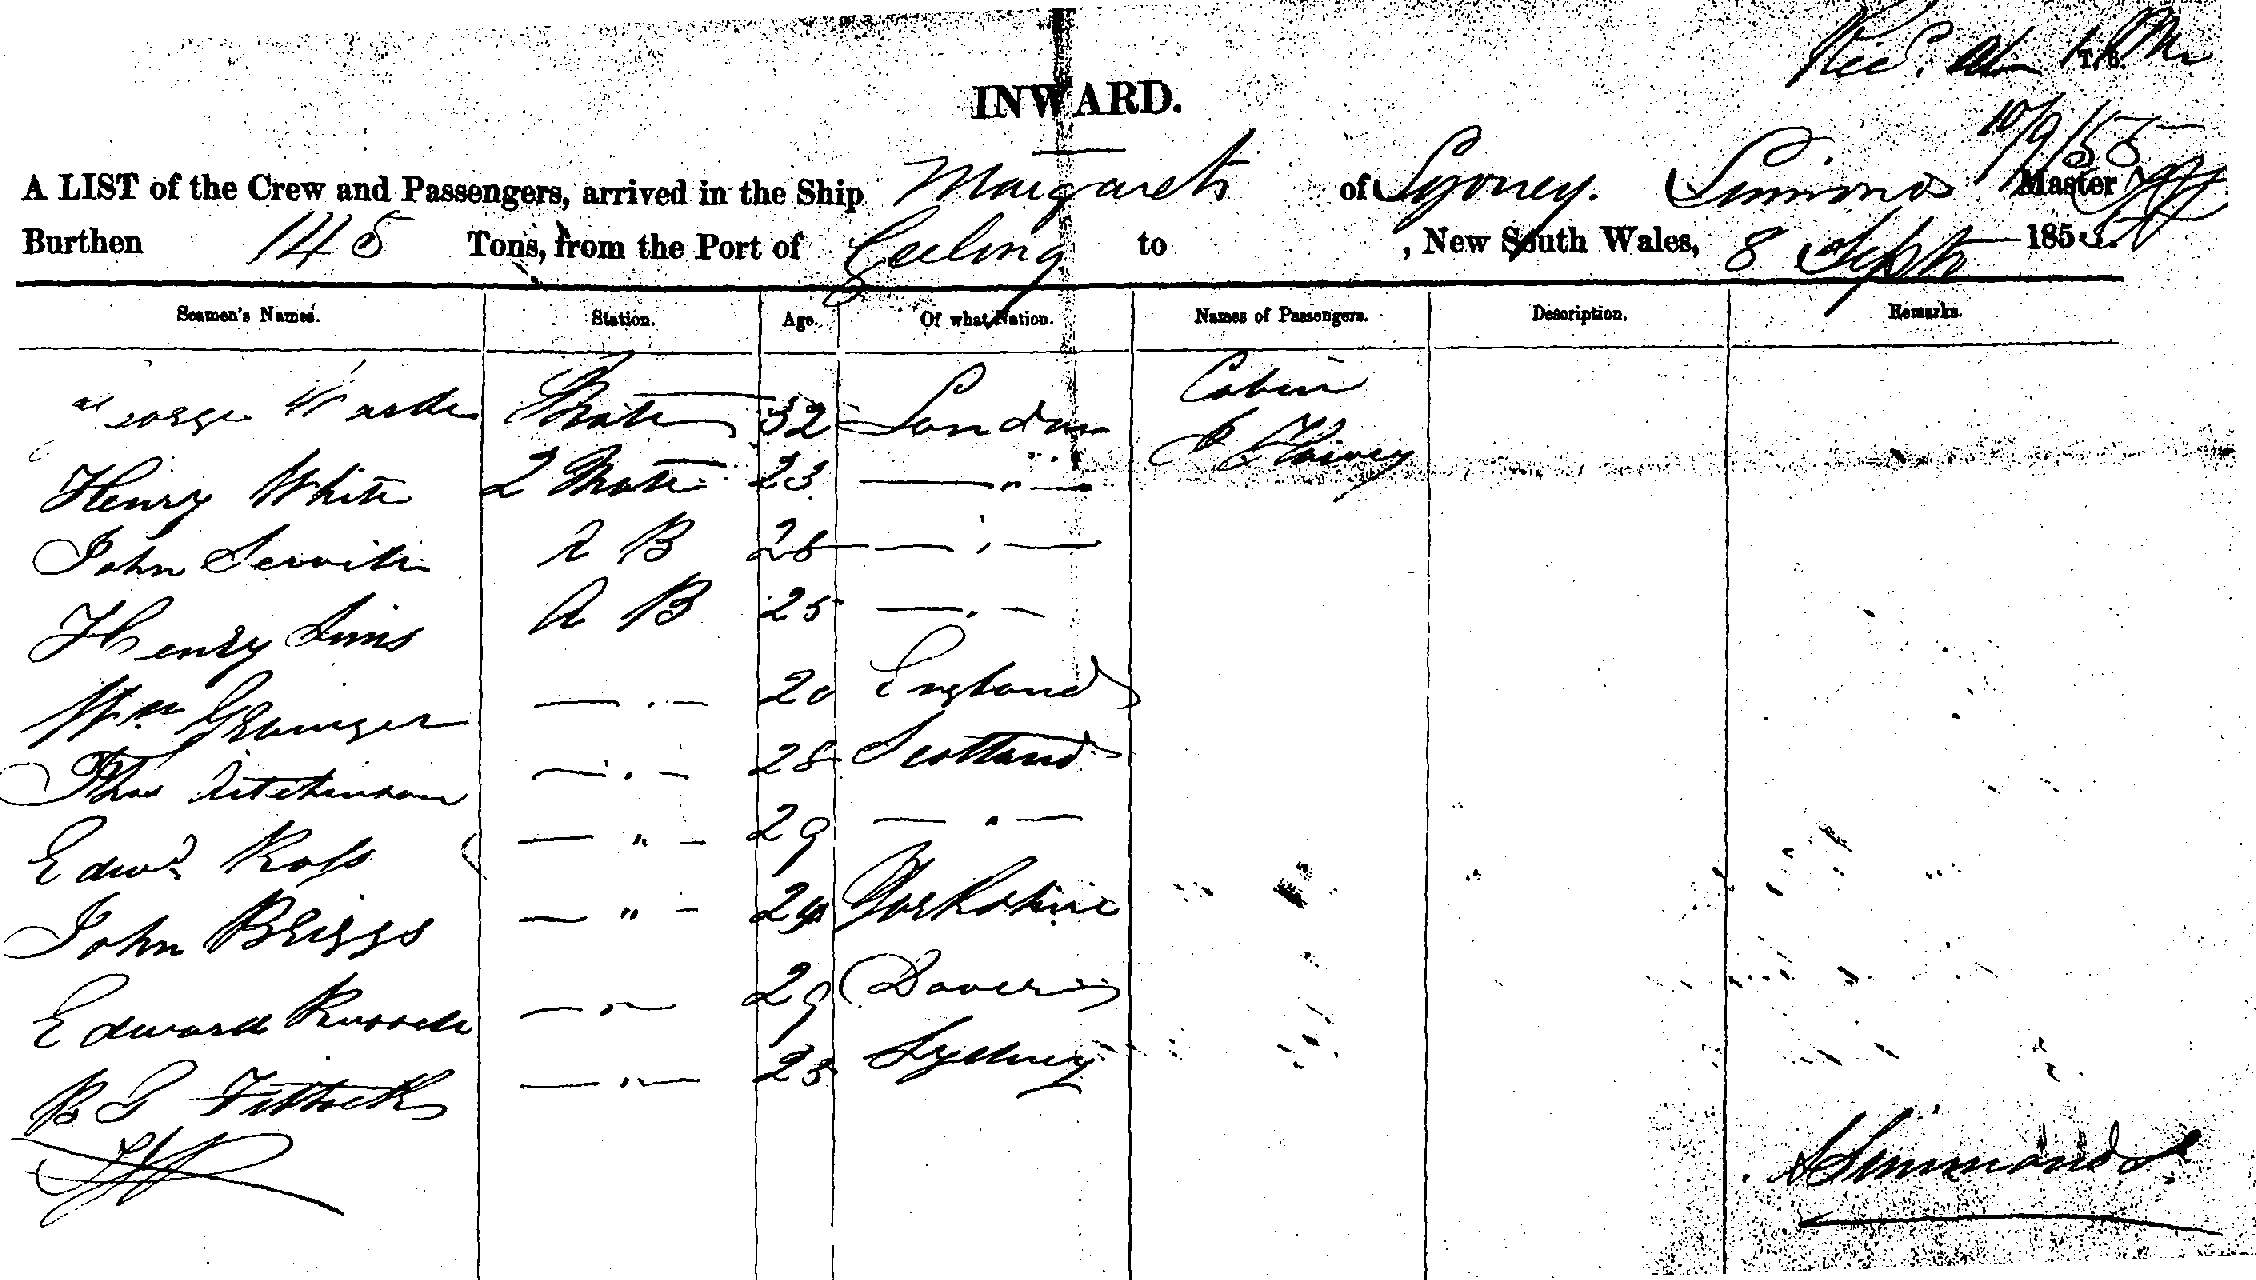 Recd. at 1 PM
10/9/55
INWARD.
A LIST of the Crew and Passengers, arrived in the Ship Margaret of Sydney. Simmonds Master
Burthen 145 Tons, from the Port of to , New South Wales, 8 Sept 185
Seamen's Names. Station. Age. Of what Nation. Names of Passengers. Description. Remarks.
George Mate 32 London Cabin
Henry White 2 Mate 23 — " — J
John A B 28 — " —
Henry Sims A B 25 — " —
Wm — " — 20 England
Thos Aitchinson — " — 28 Scotland
Edwd Ross — " — 29 — " —
John Briggs — " — Yorkshire
Edward Russell — " — 29 Dover
R G Fittock — " — 28 Sydney
Simmonds